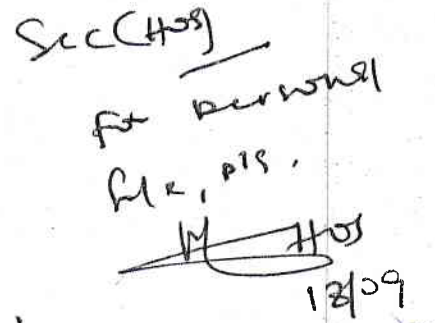 Sec (HOS)
for personal
file, pls.
HOS
18/09